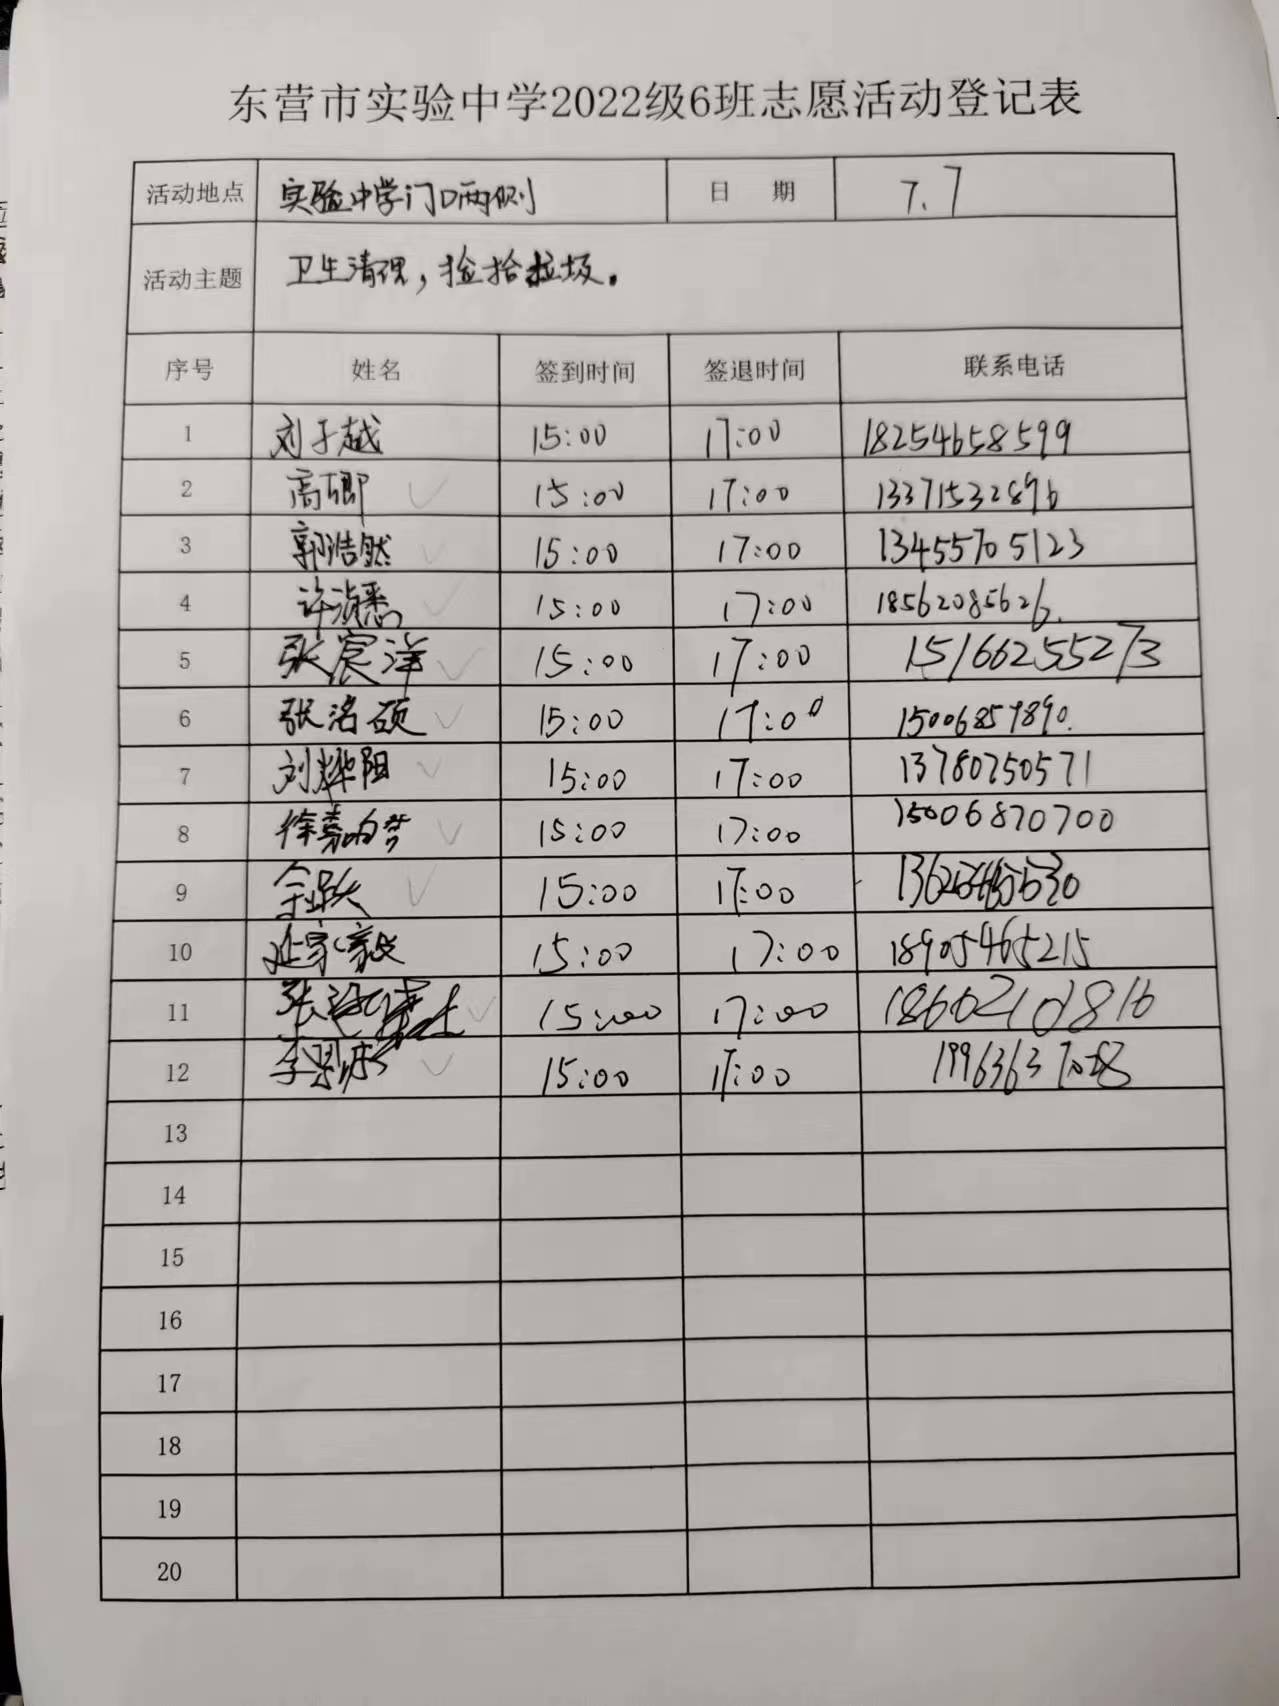 东营市实验中学2022级6班志愿活动登记表
活动地点 实验中学门口两侧 日 期 7.7
活动主题 卫生清理,捡拾垃圾。
序号 姓名 签到时间 签退时间 联系电话
1 刘子越 15:00 17:00 18254658599
2 高卿 15:00 17:00 13371532896
3 郭浩然 15:00 17:00 13455705123
4 15:00 17:00 18562085626
5 张宸洋 15:00 17:00 15166255273
6 张洺硕 15:00 17:00 15006857890
7 刘烨阳 15:00 17:00 13780750571
8 15:00 17:00 15006870700
9 15:00 17:00
10 15:00 17:00 18905465215
11 15:00 17:00
12 15:00 17:00
13
14
15
16
17
18
19
20